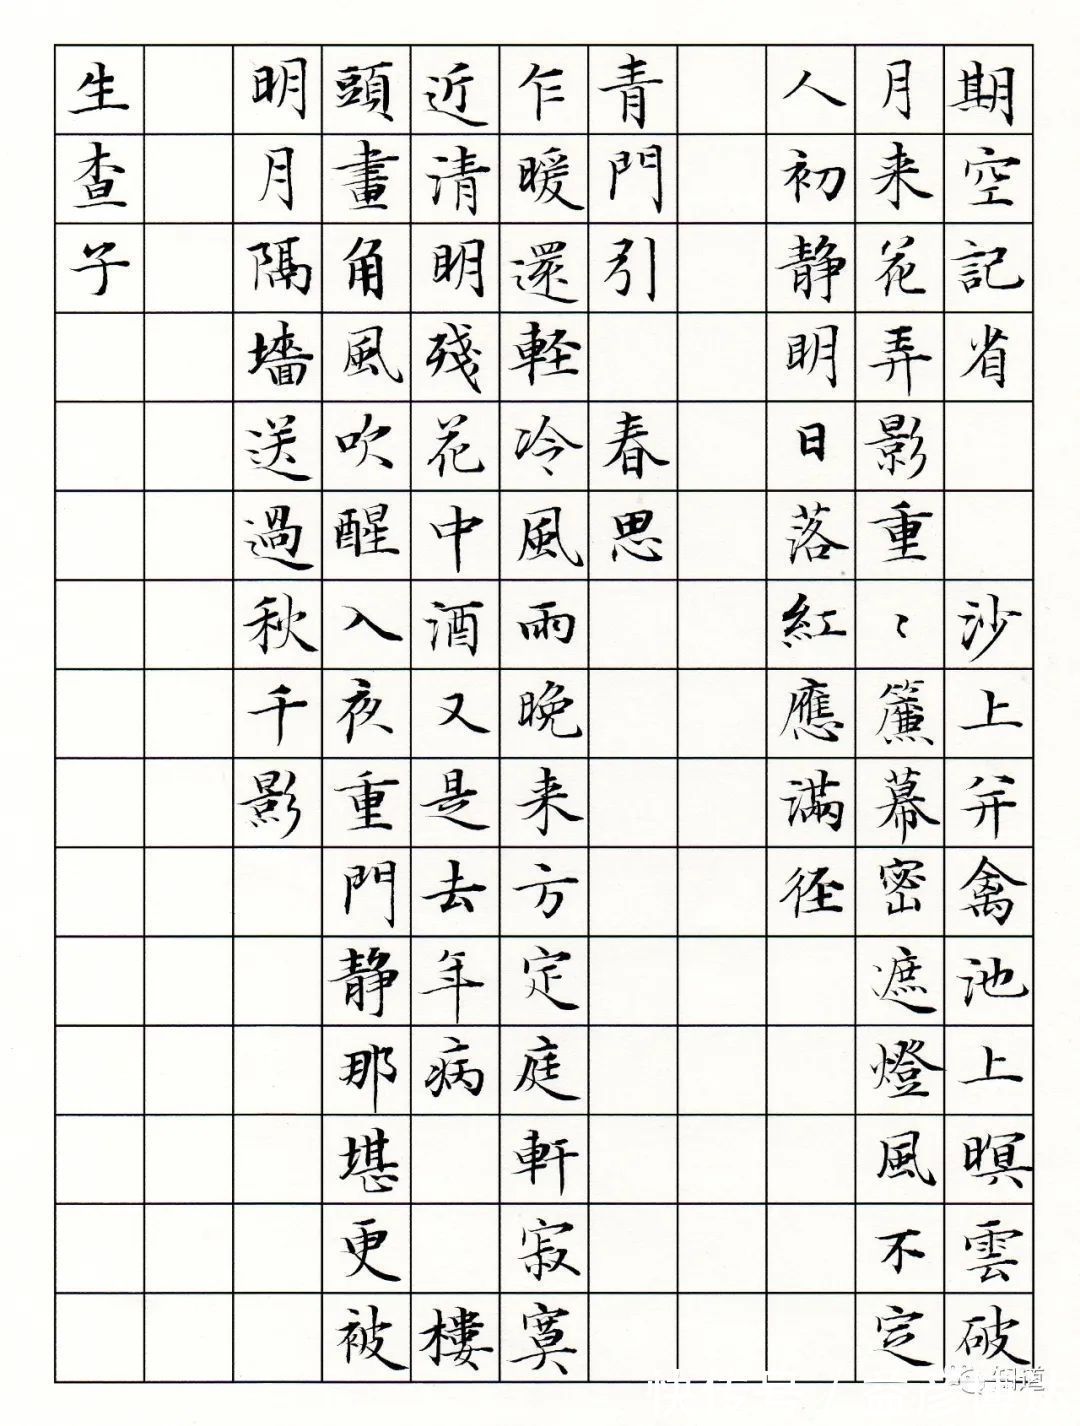 期空記省　　沙上并禽池上暝雲破
月来花弄影重〻簾幕密遮燈風不定
人初静明日落紅應滿徑
青門引　春思
乍暖還軽冷風雨晚来方定庭軒寂寞
近清明殘花中酒又是去年病　　樓
頭畫角風吹醒入夜重門静那堪更被
明月隔墻送過秋千影
生查子